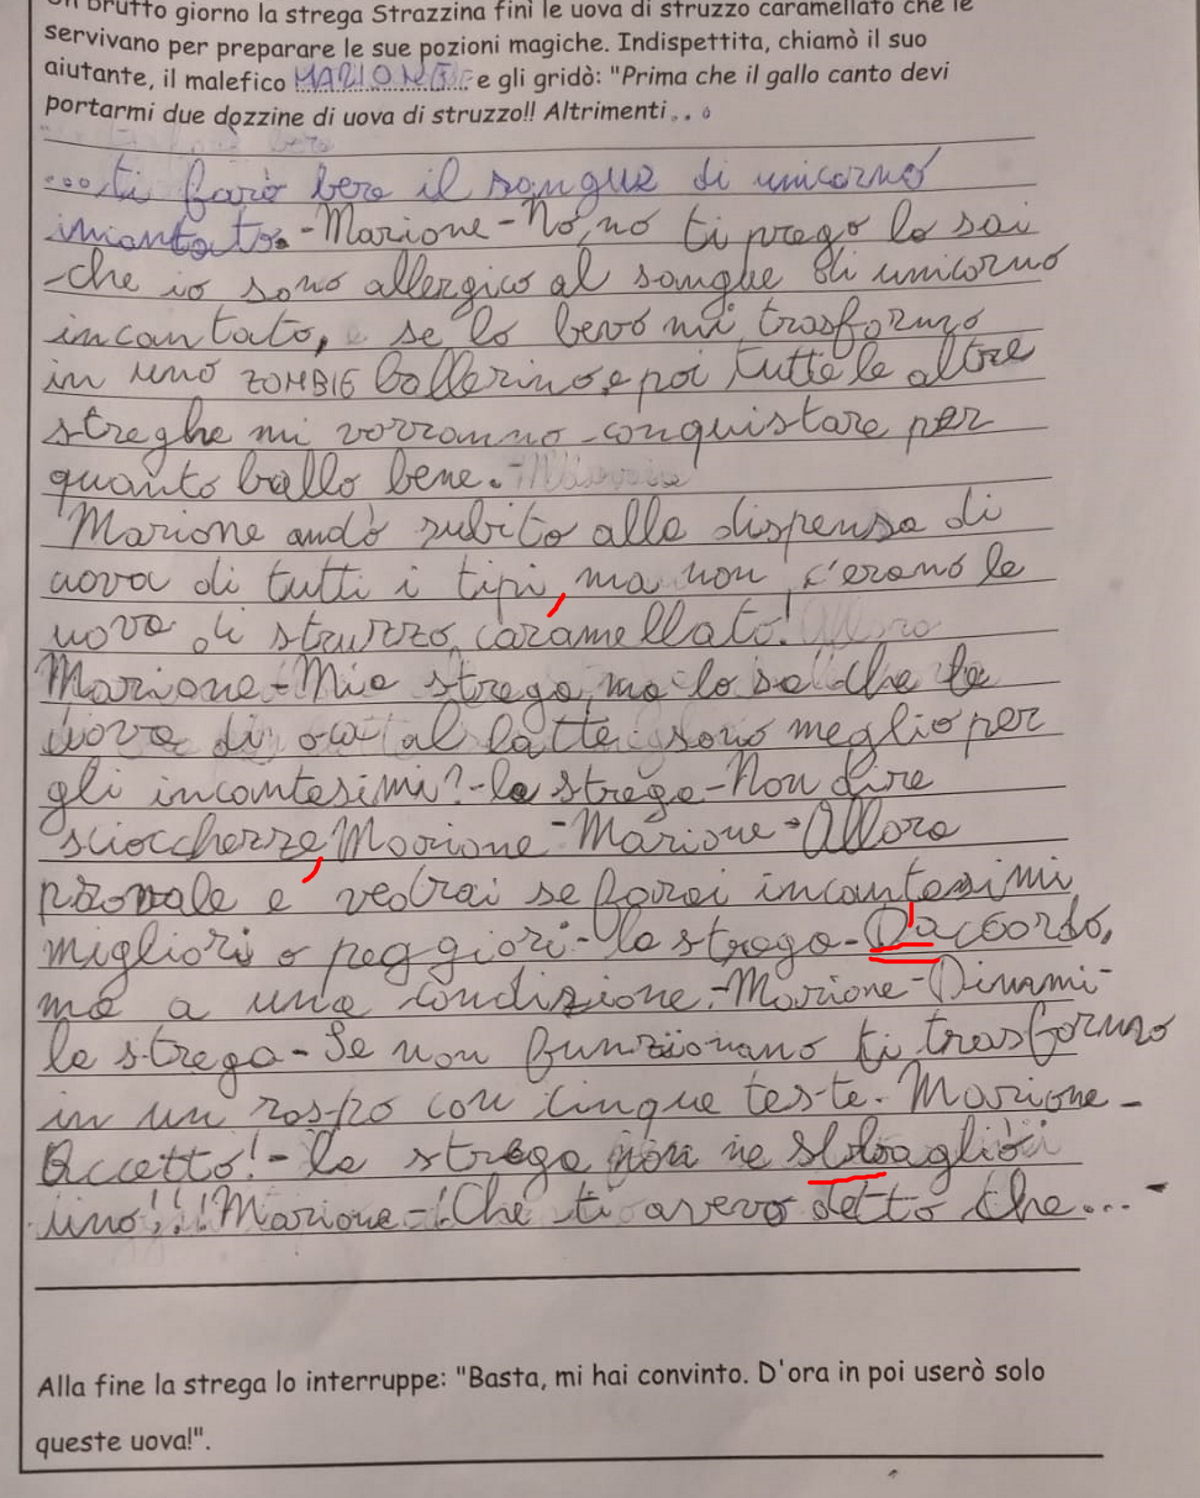 Un brutto giorno la strega Strazzina finì le uova di struzzo caramellato che le
servivano per preparare le sue pozioni magiche. Indispettita, chiamò il suo
aiutante, il malefico MARIONE e gli gridò: "Prima che il gallo canto devi
portarmi due dozzine di uova di struzzo!! Altrimenti...
...ti farò bere il sangue di unicorno
incantato.-Marione-No, no ti prego lo sai
che io sono allergico al sangue di unicorno
incantato, se lo bevo mi trasformo
in uno ZOMBIE ballerino, e poi tutte le altre
streghe mi vorranno conquistare per
quanto ballo bene.-
Marione andò subito alla dispensa di
uova di tutti i tipi, ma non c'erano le
uova di struzzo caramellato!
Marione-Mia strega, ma lo sai che le
uova di oca al latte sono meglio per
gli incantesimi?-la strega-Non dire
sciocchezze, Marione-Marione-Allora
provale e vedrai se farai incantesimi
migliori o peggiori-la strega-D'accordo,
ma a una condizione.-Marione-Dimmi-
la strega-Se non funzionano ti trasformo
in un rospo con cinque teste. Marione-
Accetto!-la strega non ne sbagliò
uno!!! Marione-!Che ti avevo detto che...-
Alla fine la strega lo interruppe: "Basta, mi hai convinto. D'ora in poi userò solo
queste uova!".